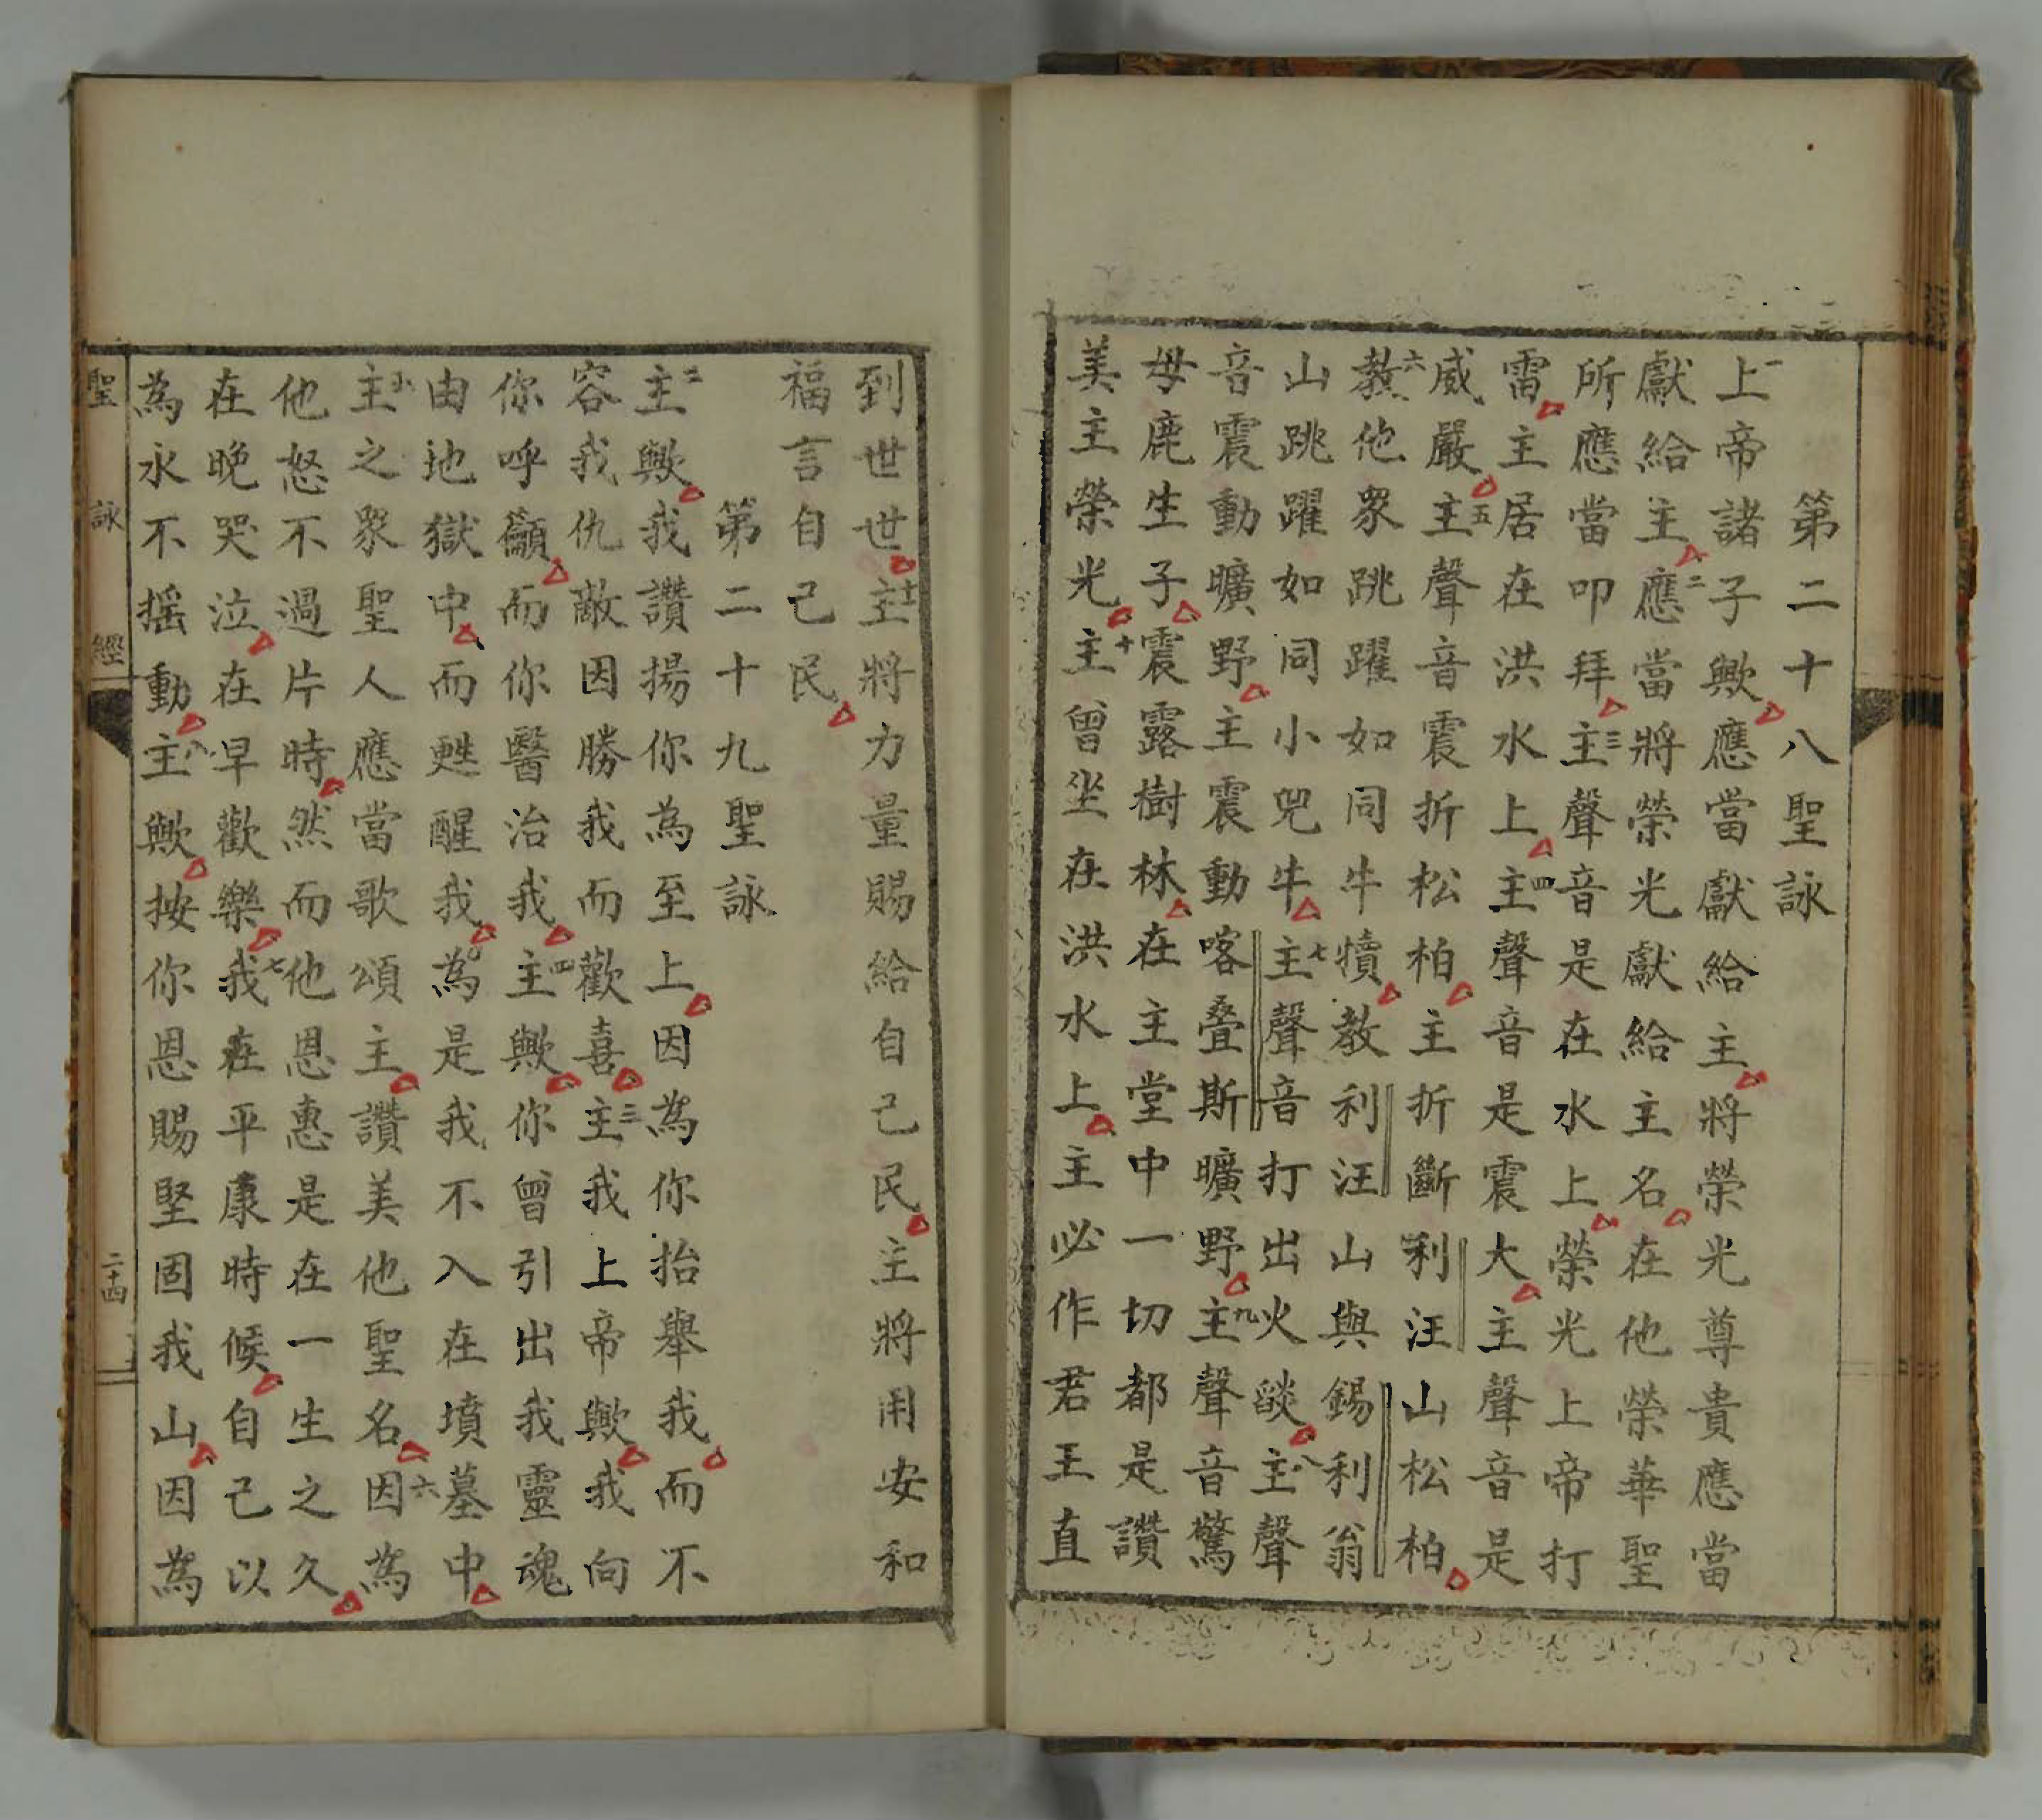 第二十八聖詠
一上帝諸子歟應當獻給主將榮光尊貴應當
獻給主二應當將榮光獻給主名在他榮華聖
所應當叩拜三主聲音是在水上榮光上帝打
雷主居在洪水上四主聲音是震大主聲音是
威嚴五主聲音震折松柏主折斷利汪山松柏
六教他眾跳躍如同牛犢教利汪山與錫利翁
山跳躍如同小兕牛七主聲音打出火燄八主聲
音震動曠野主震動喀叠斯曠野九主聲音驚
母鹿生子震露樹林在主堂中一切都是讚
美主榮光十主曾坐在洪水上主必作君王直
到世世十一主將力量賜給自己民主將用安和
福言自己民
第二十九聖詠
二主歟我讚揚你為至上因為你抬舉我而不
容我仇敵因勝我而歡喜三主我上帝歟我向
你呼籲而你醫治我四主歟你曾引出我靈魂
由地獄中而甦醒我為是我不入在墳墓中
五主之眾聖人應當歌頌主讚美他聖名六因為
他怒不過片時然而他恩惠是在一生之久
在晚哭泣在早歡樂七我在平康時候自己以
為永不搖動八主歟按你恩賜堅固我山因為
聖詠經
二十四